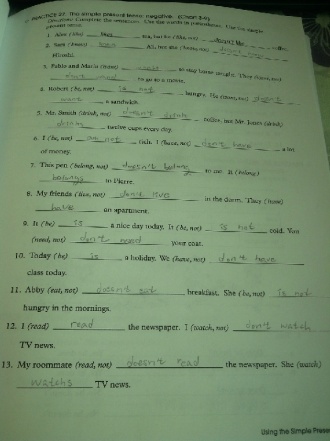 PRACTICE 27. The simple present tense: negative. (Chart 3-6)
Directions: Complete the sentences. Use the words in parentheses. Use the simple
present tense.
1. Alex (like) likes tea, but he (like, not) doesn't like coffee.
2. Sara (know) Ali, but she (know, not)
Hiroshi.
3. Pablo and Maria (want) to stay home tonight. They (want, not)
to go to a movie.
4. Robert (be, not) is not hungry. He (want, not) doesn't
want a sandwich.
5. Mr. Smith (drink, not) doesn't drink coffee, but Mr. Jones (drink)
twelve cups every day.
6. I (be, not) not rich. I (have, not) don't have a lot
of money.
7. This pen (belong, not) doesn't belong to me. It (belong)
belongs to Pierre.
8. My friends (live, not) don't live in the dorm. They (have)
have an apartment.
9. It (be) is a nice day today. It (be, not) is not cold. You
(need, not) don't need your coat.
10. Today (be) is a holiday. We (have, not) don't have
class today.
11. Abby (eat, not) doesn't eat breakfast. She (be, not) is not
hungry in the mornings.
12. I (read) read the newspaper. I (watch, not) don't watch
TV news.
13. My roommate (read, not) doesn't read the newspaper. She (watch)
watchs TV news.
Using the Simple Prese